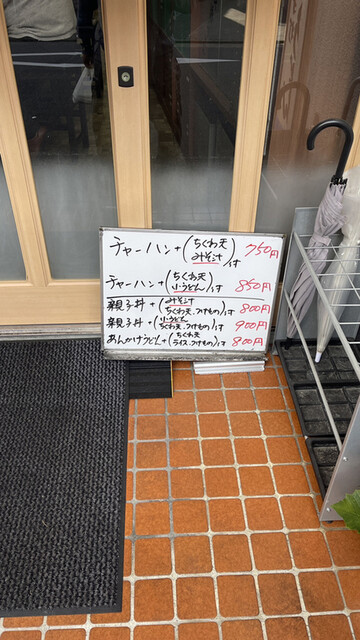 チャーハン+(ちくわ天 みそ汁)付 750円
チャーハン+(ちくわ天 小うどん)付 850円
親子丼+(みそ汁 ちくわ天、つけもの)付 800円
親子丼+(小うどん ちくわ天、つけもの)付 900円
あんかけうどん+(ちくわ天 ライス、つけもの)付 800円